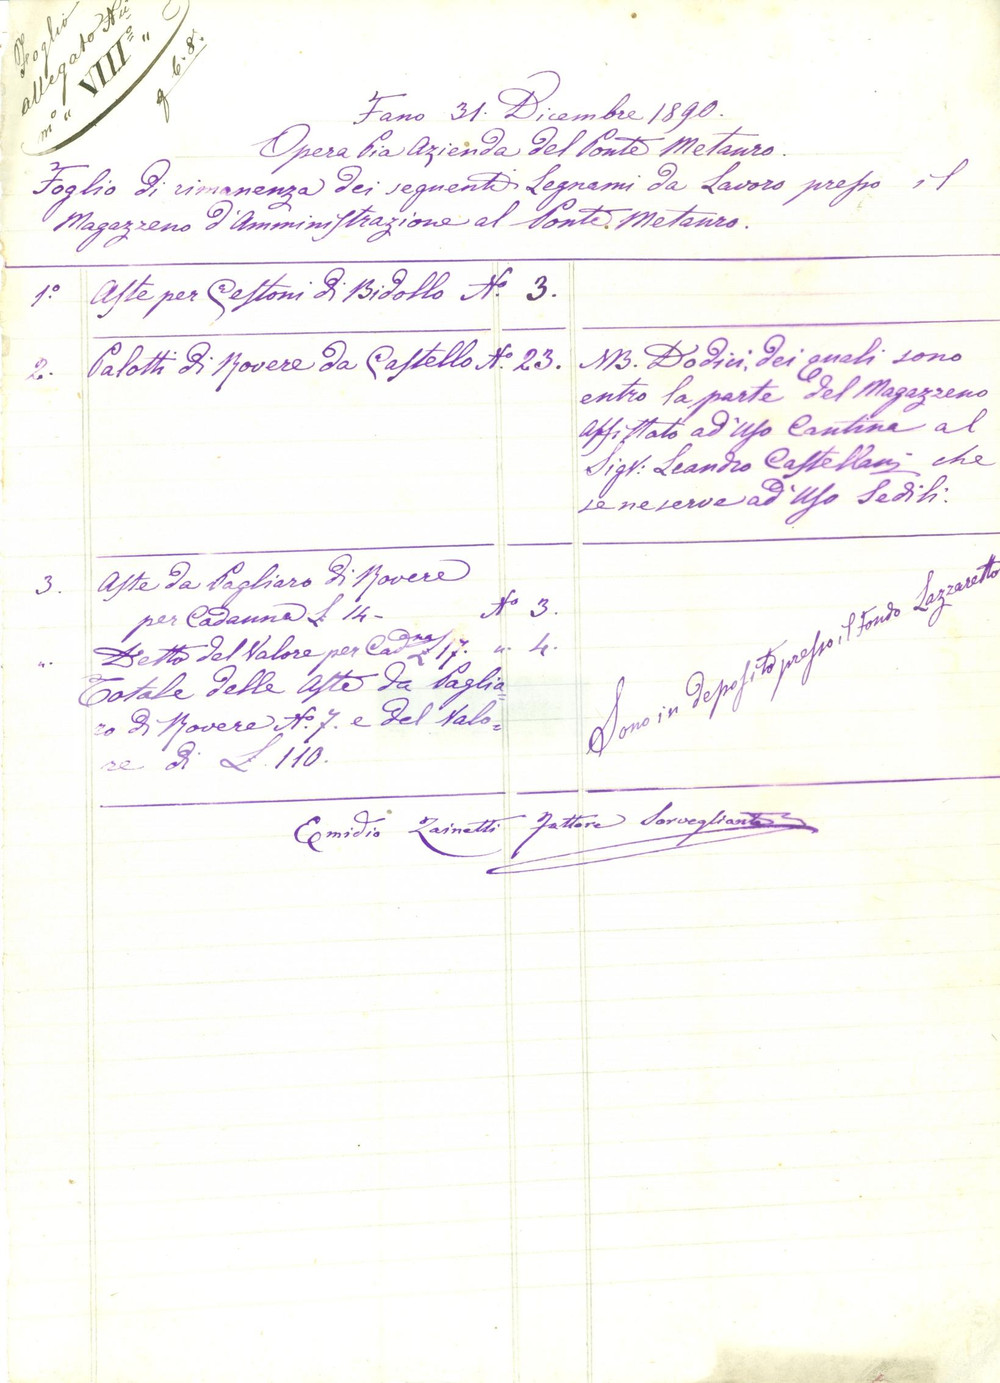 Foglio
allegato Nu
mo " VIIIo "
Fano 31. Dicembre 1890.
Opera Pia Azienda del Ponte Metauro.
Foglio di rimanenza dei seguenti Legnami da Lavoro presso il
Magazzeno d'Amministrazione al Ponte Metauro.
1.o Aste per Cestoni di Bidollo No. 3.
2. Palotti di Rovere da Castello No. 23.
NB. Dodici, dei quali sono
entro la parte del Magazzeno
affittato ad'Uso Cantina al
Sigr: Leandro Castellani che
se ne serve ad'Uso Sedili.
3. Aste da Pagliaro di Rovere
per Cadauna L 14- No 3.
". Dette del Valore per Cadauna L 17. ". 4.
Totale delle Aste da Paglia=
ro di Rovere No. 7. e del Valo=
re di L. 110.
Sono in deposito presso il Fondo Lazzaretto
Emidio Zainetti Fattore Sorvegliante